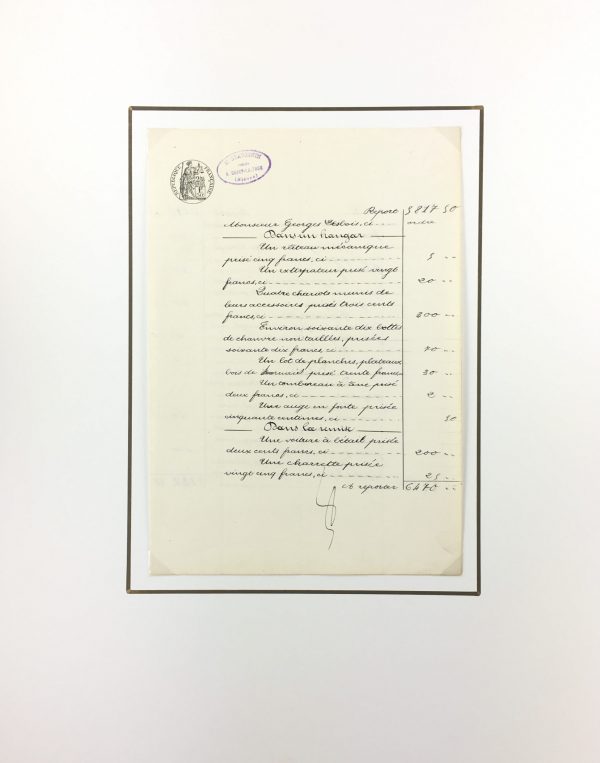 RÉPUBLIQUE FRANÇAISE
Report 5817 50
Monsieur Georges Lesbois, ci ordre
Dans un hangar
Un râteau mécanique
prisé cinq francs, ci 5 "
Un extirpateur prisé vingt
francs, ci 20 "
Quatre chariots munis de
leurs accessoires prisés trois cents
francs, ci 300 "
Environ soixante dix bottes
de chanvre non taillées, prisées
soixante dix francs, ci 70 "
Un lot de planches, plateaux
bois de prisé trente francs 30 "
Un tombereau à âne prisé
deux francs, ci 2 "
Une auge en fonte prisée
cinquante centimes, ci 50
Dans la remise
Une voiture à bétail prisée
deux cents francs, ci 200 "
Une charrette prisée
vingt cinq francs, ci 25 "
A reporter 6470 "